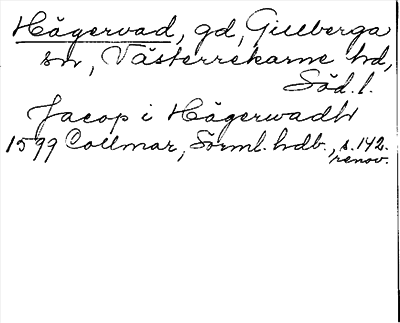 Hågervad, gd, Gillberga
sn, Västerrekarne hd,
Söd. l.
Jacop i Hågerwadh
1599 Collmar, Sörml. hdb., s. 142.
renov.